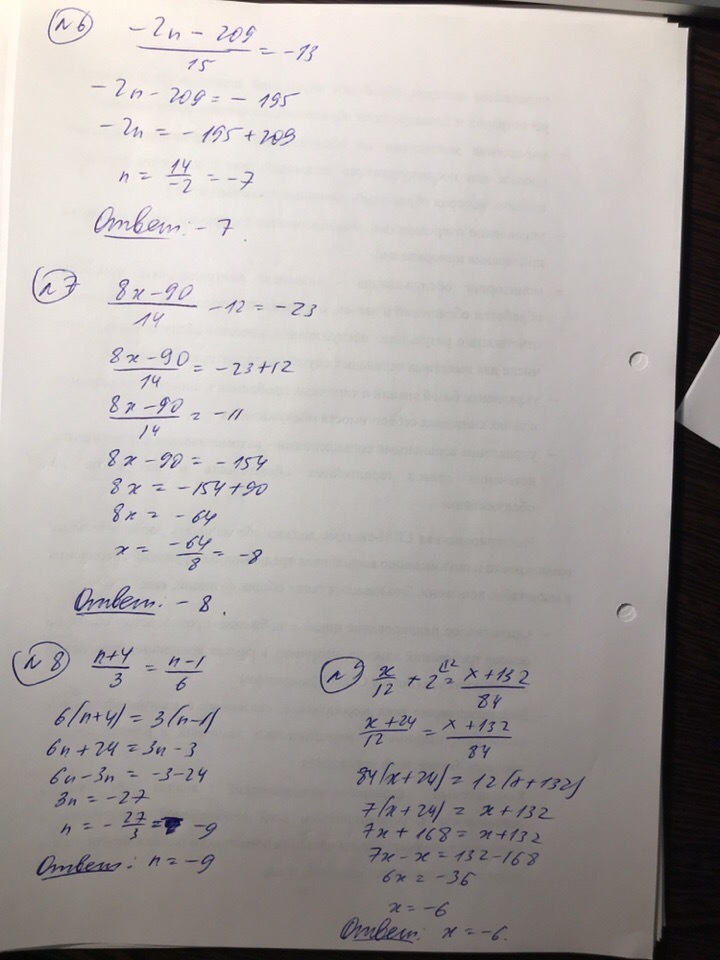 №6
(-2n - 209)/15 = -13
-2n - 209 = -195
-2n = -195 + 209
n = 14/-2 = -7
Ответ: -7.
№7
(8x-90)/14 - 12 = -23
(8x-90)/14 = -23+12
(8x-90)/14 = -11
8x-90 = -154
8x = -154+90
8x = -64
x = -64/8 = -8
Ответ: -8.
№8
(n+4)/3 = (n-1)/6
6(n+4) = 3(n-1)
6n+24 = 3n-3
6n-3n = -3-24
3n = -27
n = -27/3 = -9
Ответ: n = -9
№9
x/12 + 2^(12 = (x+132)/84
(x+24)/12 = (x+132)/84
84(x+24) = 12(x+132)
7(x+24) = x+132
7x+168 = x+132
7x-x = 132-168
6x = -36
x = -6
Ответ: x = -6.